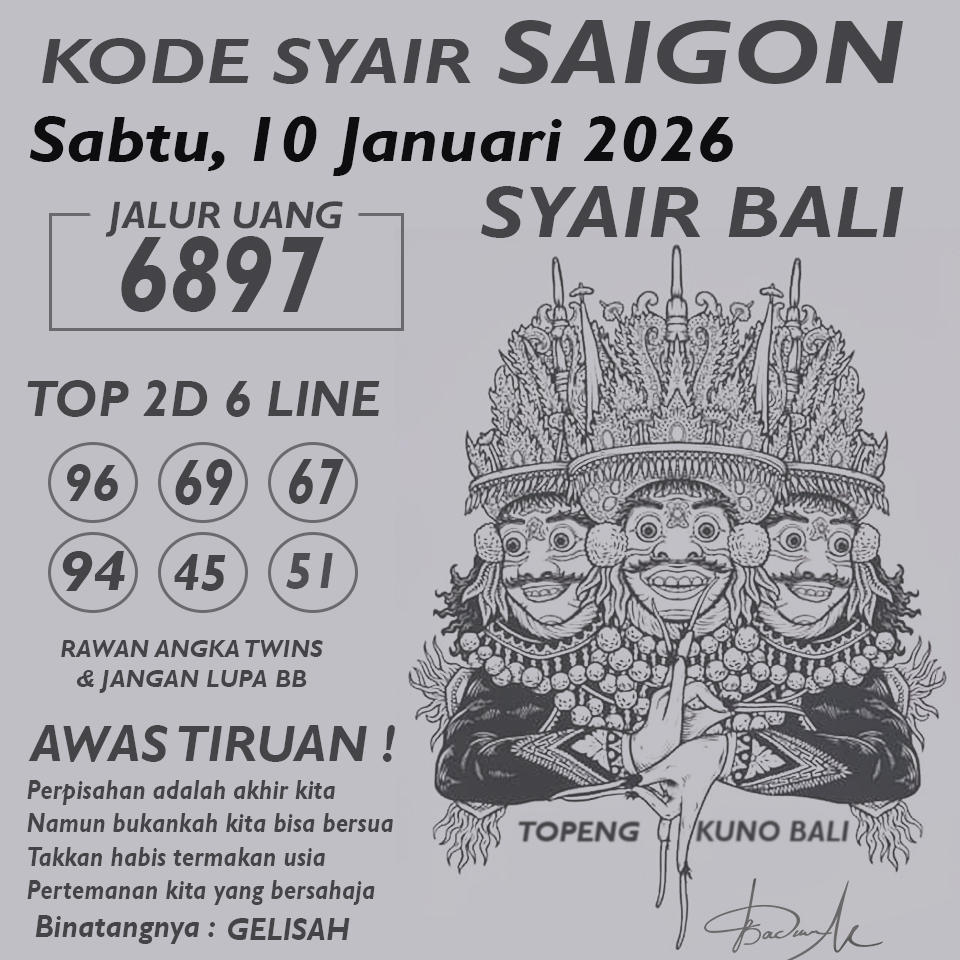 KODE SYAIR SAIGON
Sabtu, 10 Januari 2026
SYAIR BALI
JALUR UANG
6897
TOP 2D 6 LINE
96 69 67
94 45 51
RAWAN ANGKA TWINS
& JANGAN LUPA BB
AWAS TIRUAN !
Perpisahan adalah akhir kita
Namun bukankah kita bisa bersua
Takkan habis termakan usia
Pertemanan kita yang bersahaja
Binatangnya : GELISAH
TOPENG KUNO BALI